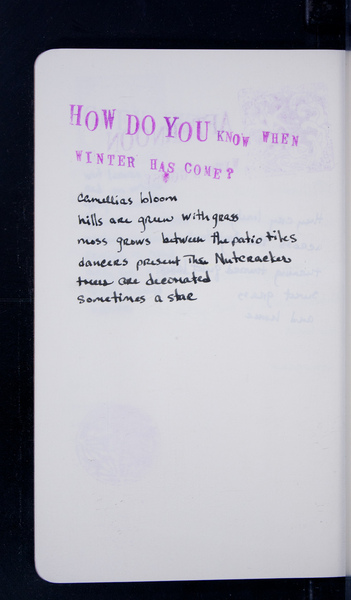 HOW DO YOU KNOW WHEN
WINTER HAS COME?
camellias bloom
hills are green with grass
moss grows between the patio tiles
dancers present The Nutcracker
trees are decorated
sometimes a star